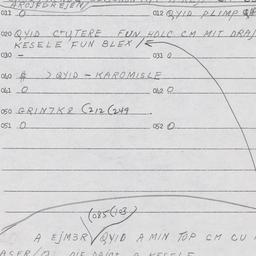 011 O 012 QYID PLIMP
020 QYID CTUTERE FUN HOLC CM MIT DRAJ
KESELE FUN BLEX/
030 - 031 O
040 > QYID - KAROMISLE
041 O 042 O
050 GRINTK8 (212 (249
051 O 052 O
(085 (103)
A EJM3R QYID A MIN TOP CM CU
A KESELE